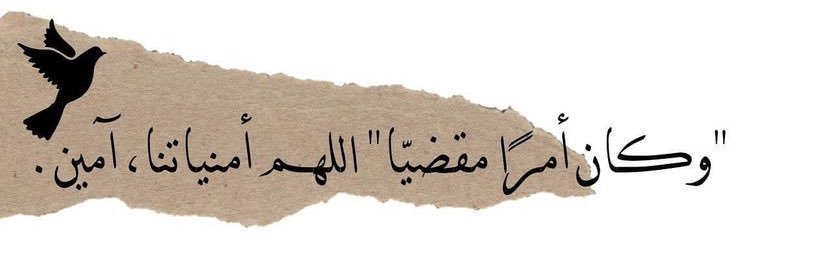 "وكان أمرًا مقضيّا" اللهم أمنياتنا، آمين.